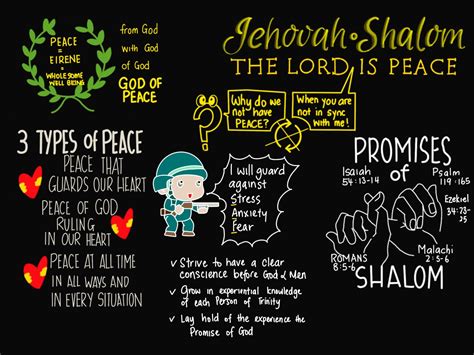 PEACE
=
EIRENE
=
WHOLESOME
WELL BEING
from God
with God
of God
GOD OF
PEACE
Jehovah · Shalom
THE LORD IS PEACE
Why do we
not have
PEACE?
When you are
not in sync
with me!
3 TYPES of PEACE
PEACE THAT
GUARDS OUR HEART
PEACE OF GOD
RULING
IN OUR HEART
PEACE AT ALL TIME
IN ALL WAYS AND
IN EVERY SITUATION
I will guard
against
Stress
Anxiety
Fear
✓ Strive to have a clear
conscience before God & Men
✓ Grow in experiential knowledge
of each Person of Trinity
✓ Lay hold of the experience the
Promise of God
PROMISES
of
Isaiah
54:13-14
Psalm
119:165
Ezekiel
34:23-
25
ROMANS
8:5-6
Malachi
2:5-6
SHALOM